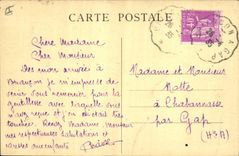 CARTE POSTALE
Chère Madame
Cher Monsieur
Dès mon arrivée à
Briançon je m'empresse de
venir vous remercier pour la
gentillesse avec laquelle vous
m'avez reçue et j'en étais très
touchée. Recevez Madame Monsieur
mes respectueuses salutations et
GAP
Madame et Monsieur
Motte
à Chabannasse
par Gap
(H-A)